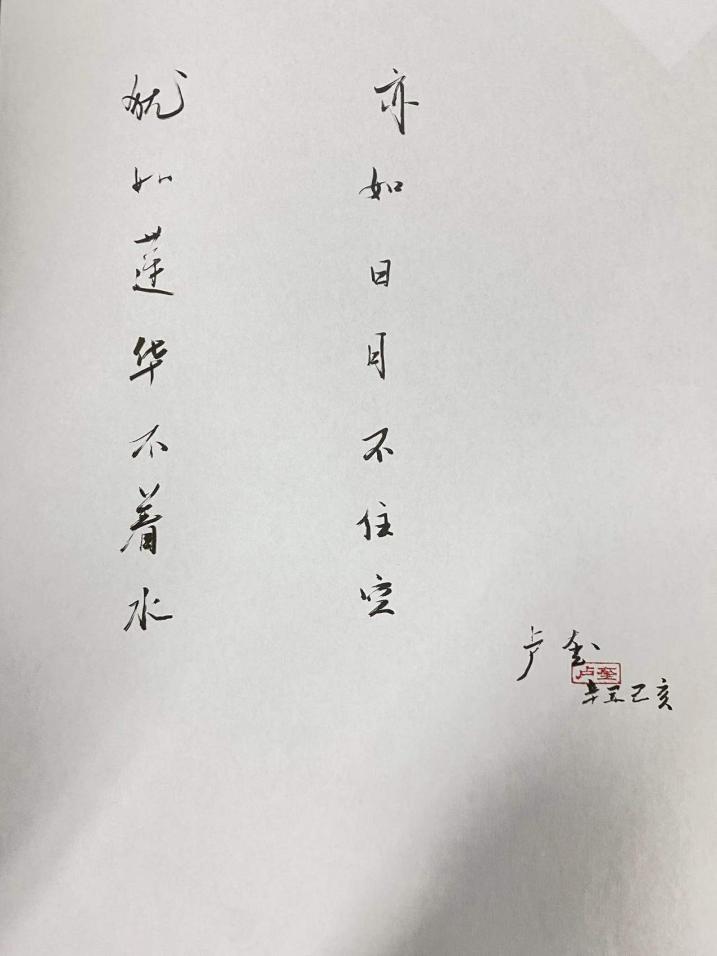 犹如莲华不着水
亦如日月不住空
卢奎
卢奎
辛丑己亥